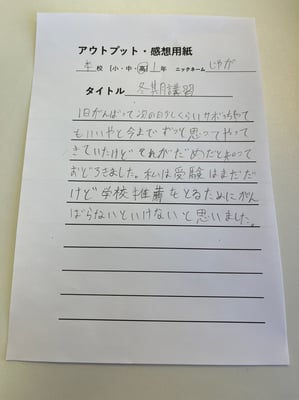 アウトプット・感想用紙
本校 (小・中・高) 1年 ニックネーム じゃが
タイトル 冬期講習
1日がんばって次の日少しくらいサボっちゃて
もいいやと今までずっと思ってやって
きていたけどそれがだめだと知って
おどろきました。私は受験はまだだ
けど学校推薦をとるためにがん
ばらないといけないと思いました。